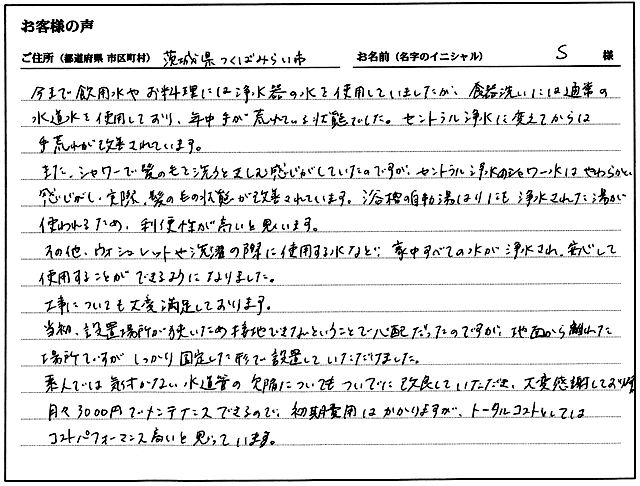 お客様の声
ご住所（都道府県 市区町村） 茨城県つくばみらい市 お名前（名字のイニシャル） S 様
今まで飲用水やお料理には浄水器の水を使用していましたが、食器洗いには通常の
水道水を使用しており、年中手が荒れている状態でした。セントラル浄水に変えてからは
手荒れが改善されています。
また、シャワーで髪の毛を洗うときしむ感じがしていたのですが、セントラル浄水のシャワー水はやわらかい
感じがし、実際、髪の毛の状態が改善されています。浴槽の自動湯はりにも浄水された湯が
使われるため、利便性が高いと思います。
その他、ウォシュレットや洗濯の際に使用する水など、家中すべての水が浄水され、安心して
使用することができるようになりました。
工事についても大変満足しております。
当初、設置場所が狭いため接地できないということで心配だったのですが、地面から離れた
場所ですがしっかり固定した形で設置していただけました。
素人では気付かない水道管の欠陥についてもついでに改良していただき、大変感謝しております
月々3000円でメンテナンスできるので、初期費用はかかりますが、トータルコストとしては
コストパフォーマンス高いと思っています。